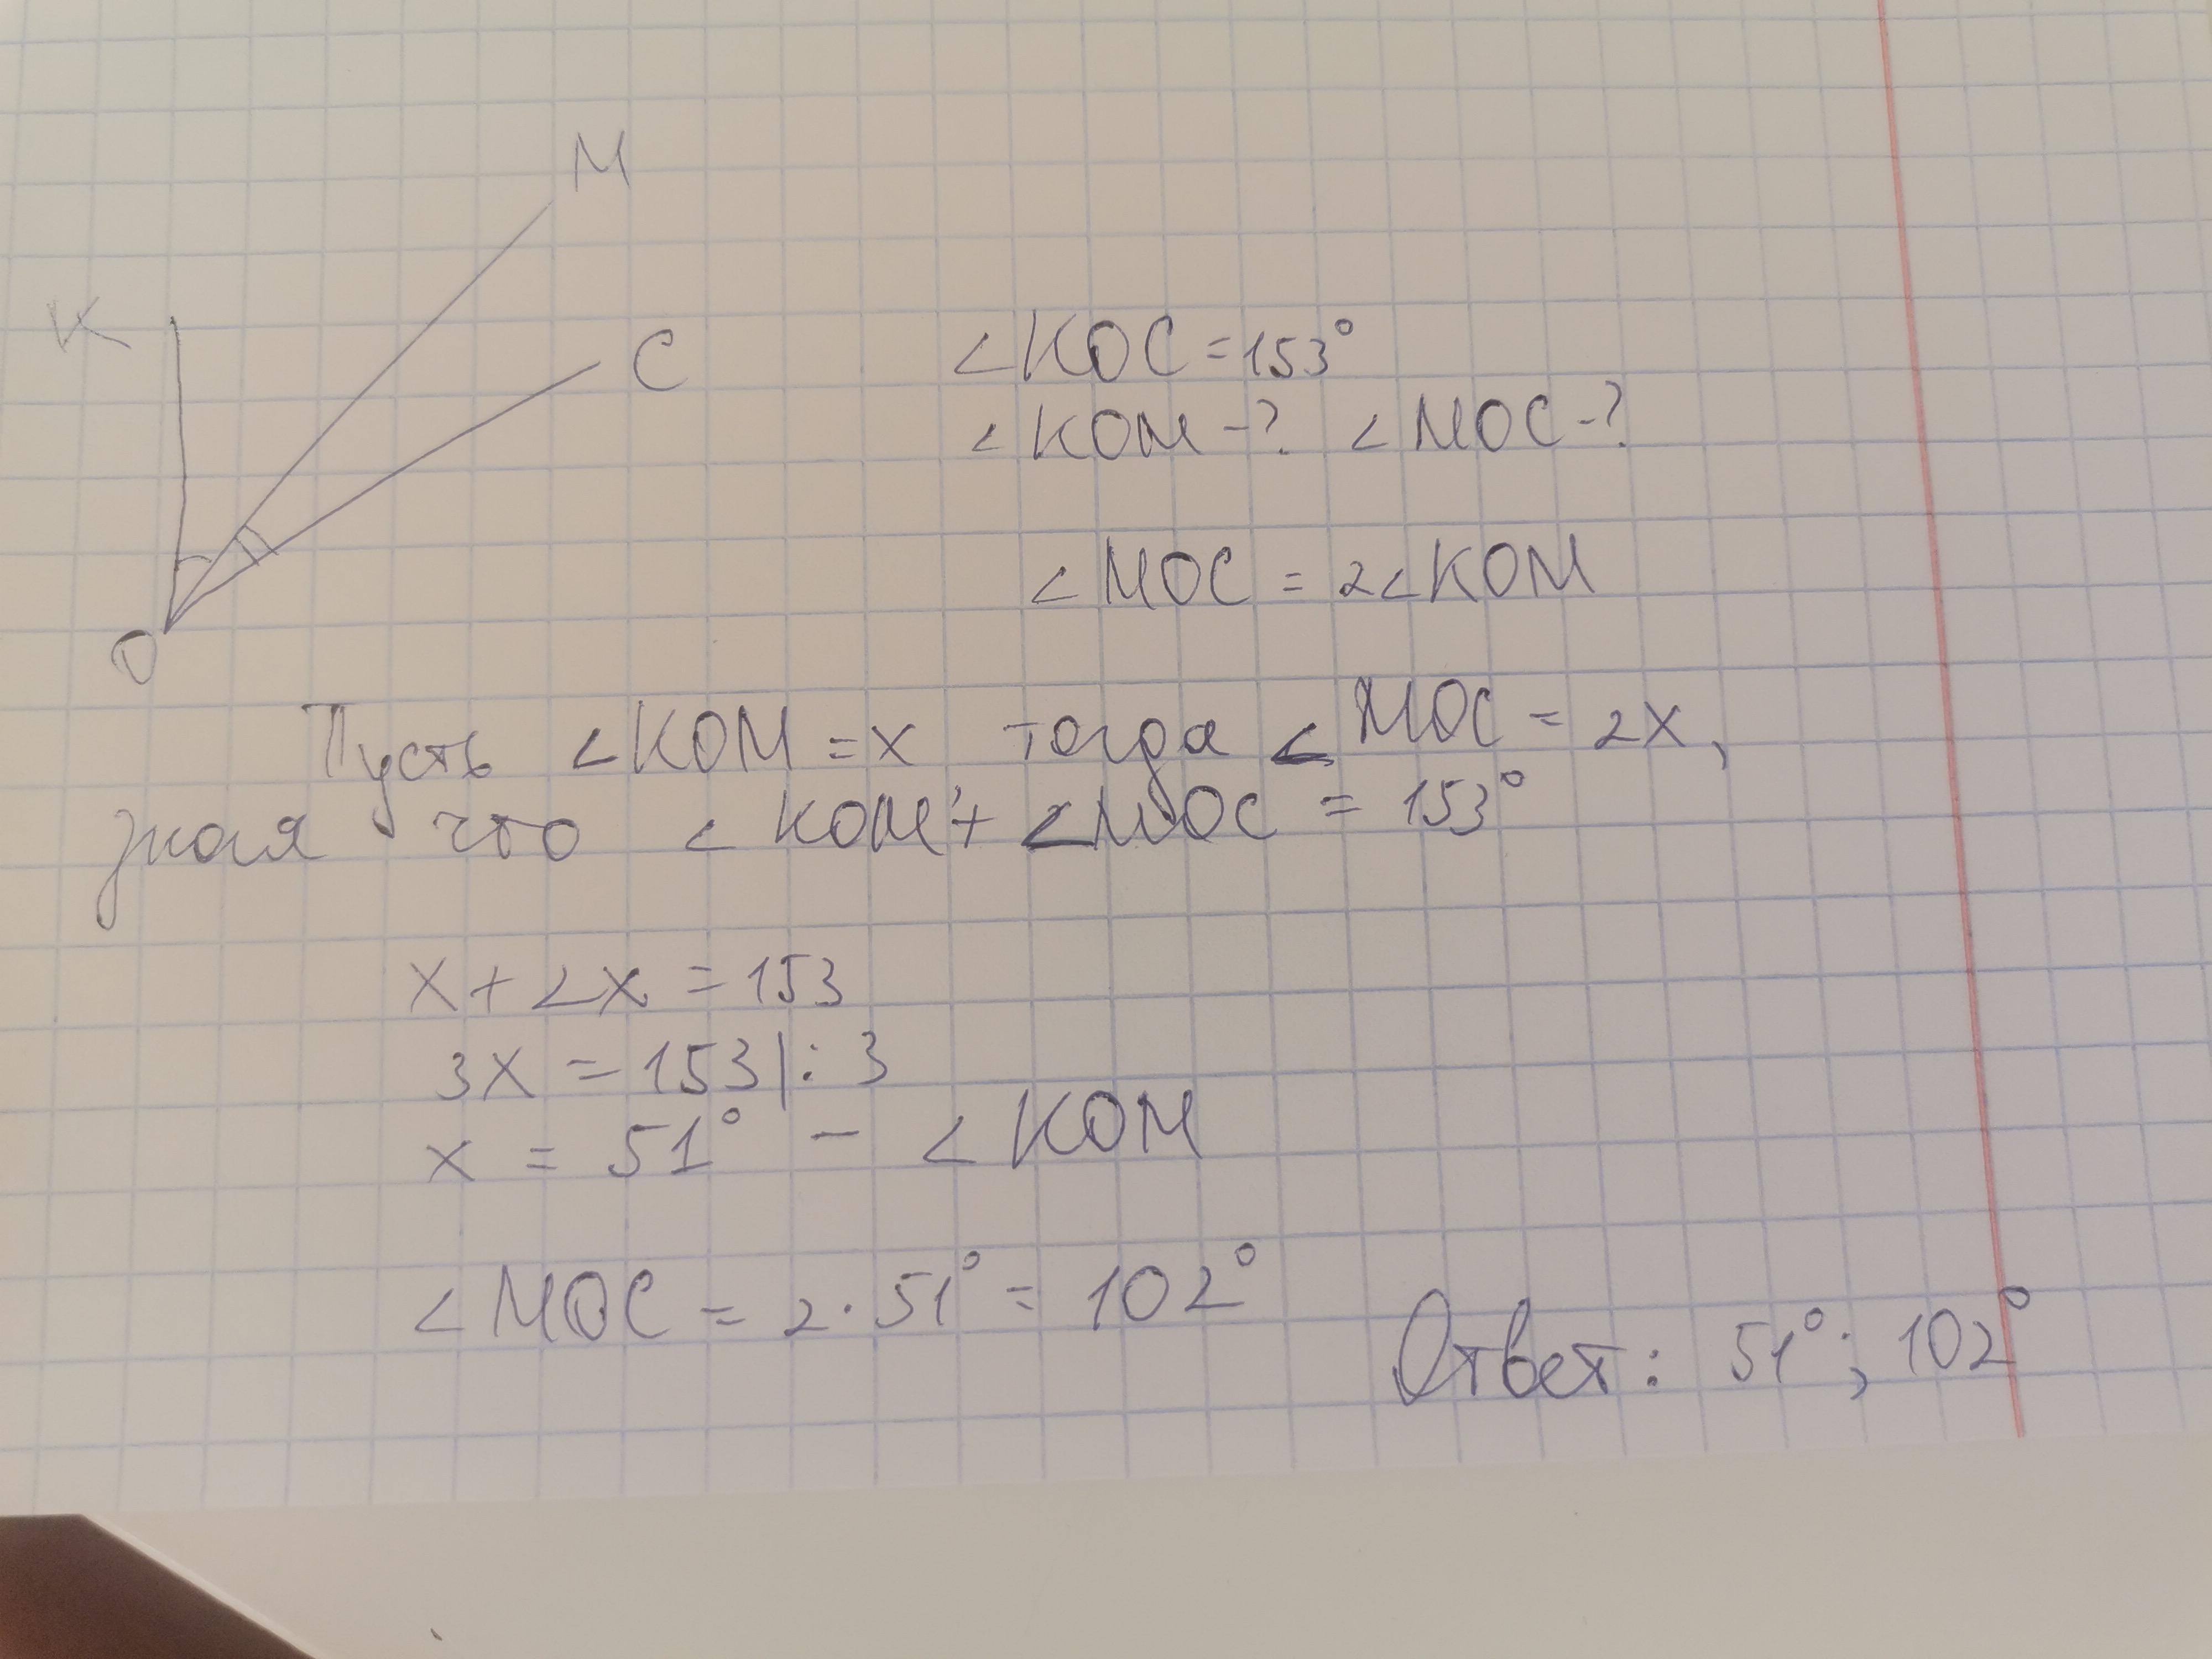 M
K
C
O
∠KOC = 153°
∠KOM - ? ∠MOC - ?
∠MOC = 2∠KOM
Пусть ∠KOM = x тогда ∠MOC = 2x,
зная что ∠KOM + ∠MOC = 153°
x + 2x = 153
3x = 153 | : 3
x = 51° – ∠KOM
∠MOC = 2 · 51° = 102°
Ответ: 51°; 102°